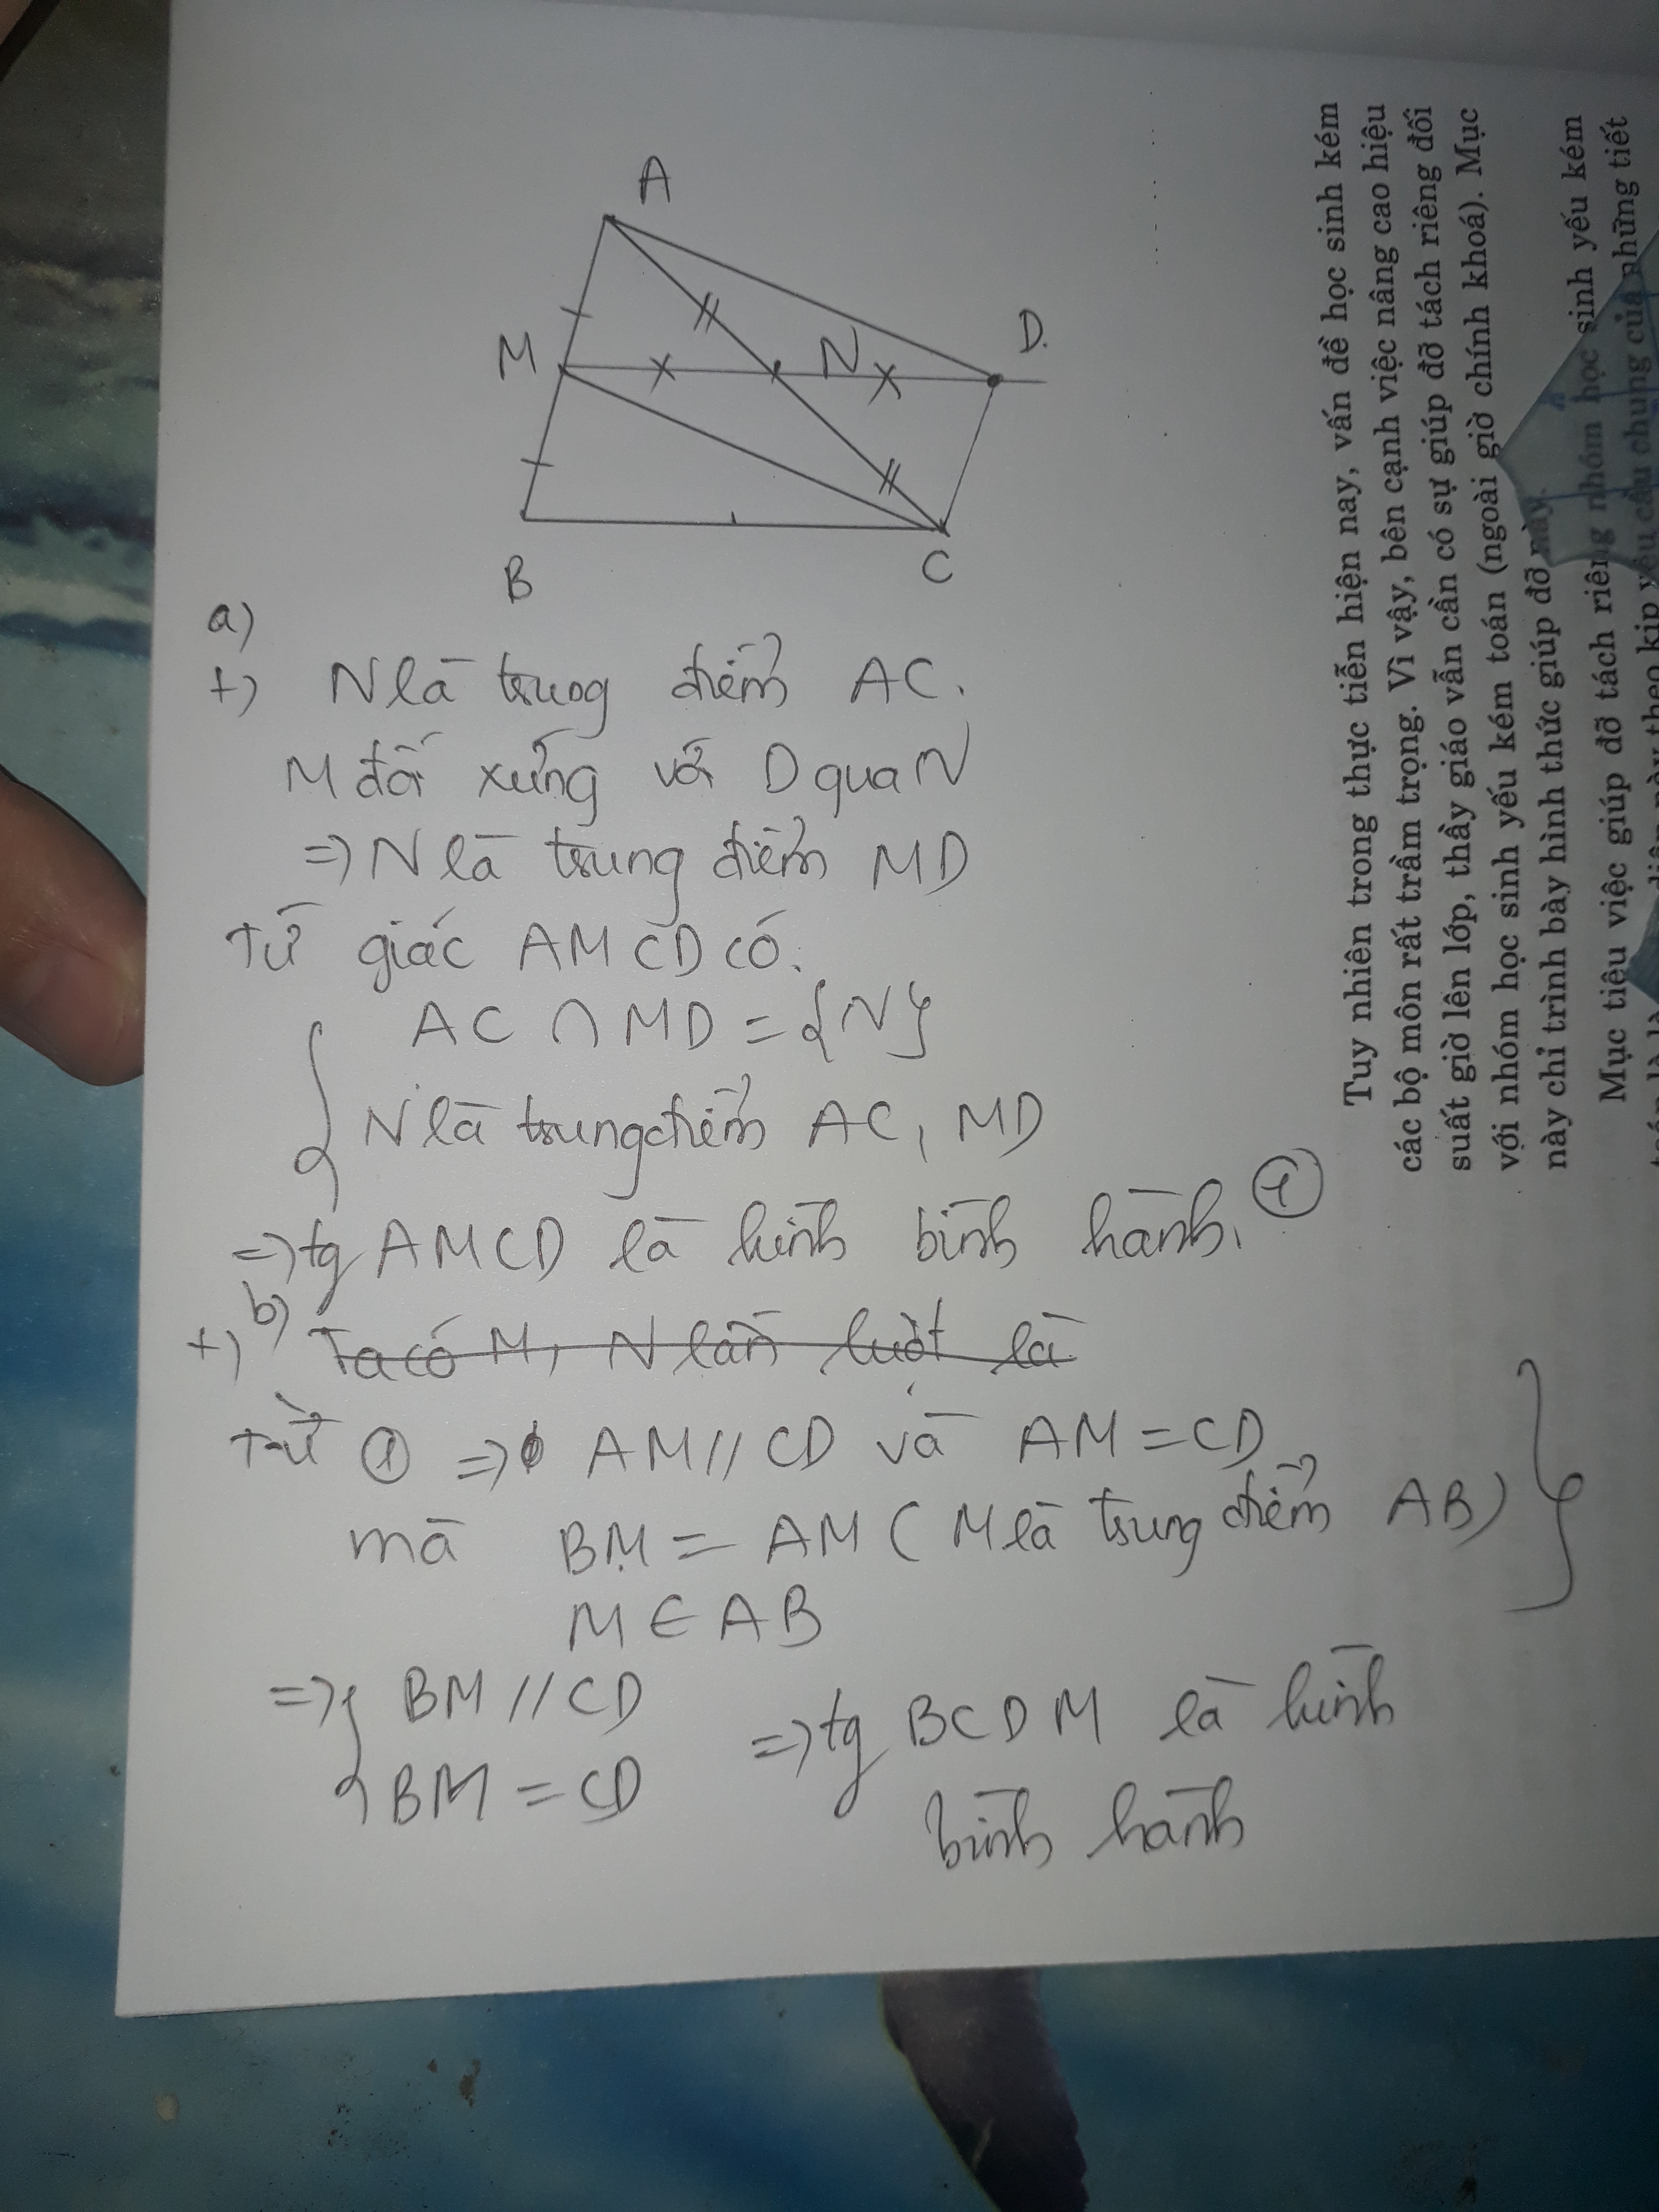 A
M
N
D
B
C
a)
+) N là trung điểm AC.
M đối xứng với D qua N
=> N là trung điểm MD
Tứ giác AMCD có:
AC ∩ MD = {N}
N là trung điểm AC, MD
=> tg AMCD là hình bình hành. (1)
+) b) Ta có M, N lần lượt là
Từ (1) => AM // CD và AM = CD
mà BM = AM ( M là trung điểm AB)
M ∈ AB
=> BM // CD
BM = CD
=> tg BCDM là hình
bình hành
Tuy nhiên trong thực tiễn hiện nay, vấn đề học sinh kém
các bộ môn rất trầm trọng. Vì vậy, bên cạnh việc nâng cao hiệu
suất giờ lên lớp, thầy giáo vẫn cần có sự giúp đỡ tách riêng đối
với nhóm học sinh yếu kém toán (ngoài giờ chính khoá). Mục
này chỉ trình bày hình thức giúp đỡ này.
Mục tiêu việc giúp đỡ tách riêng nhóm học sinh yếu kém
theo kịp yêu cầu chung của những tiết